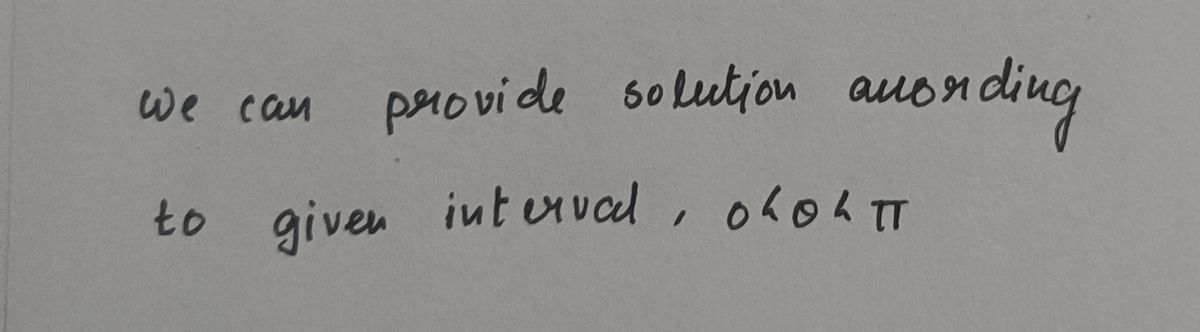 we can provide solution according
to given interval, 0<θ<π